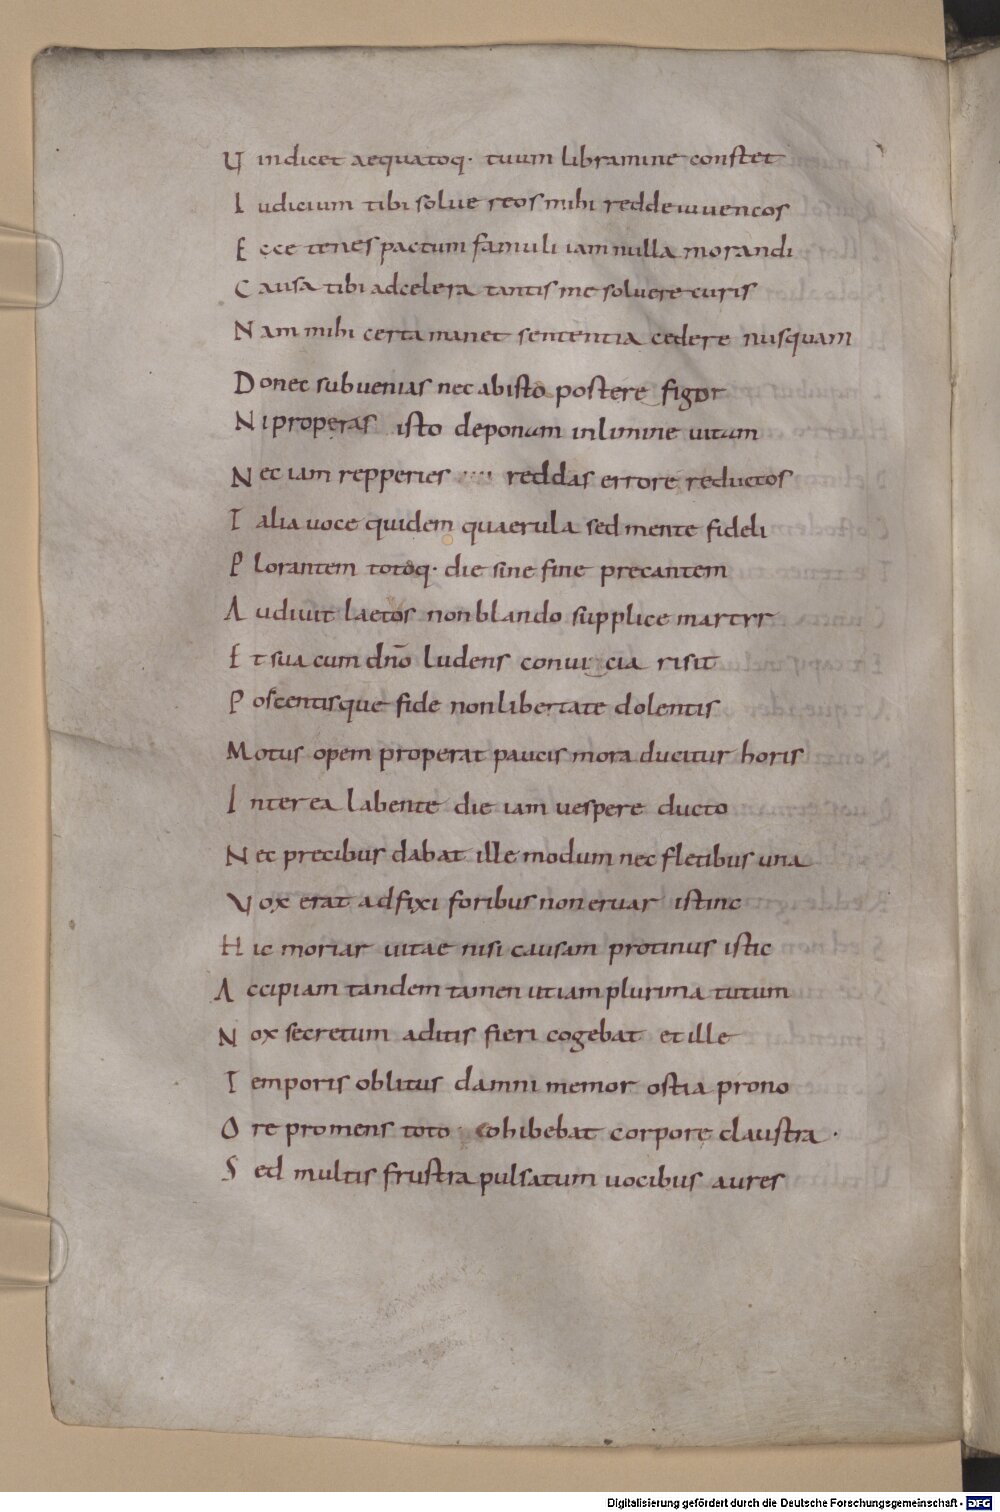 Vindicet aequatoq· tuum libramine constet
Iudicium tibi solue reos mihi redde iuuencos
Ecce tenes pactum famuli iam nulla morandi
Causa tibi adcelera tantis me soluere curis
Nam mihi certa manet sententia cedere nusquam
Donec subuenias nec ab isto postere figor
Ni properas isto deponam in limine uitam
Nec iam repperies reddas errore reductos
Talia uoce quidem quaerula sed mente fideli
Plorantem totoq· die sine fine precantem
Audiuit laetos non blando supplice martyr
Et sua cum dño ludens conuicia risit
Poscentisque fide non libertate dolentis
Motus opem properat paucis mora ducitur horis
Interea labente die iam uespere ducto
Nec precibus dabat ille modum nec fletibus una
Vox erat adfixi foribus non eruar istinc
Hic moriar uitae nisi causam protinus istic
Accipiam tandem tamen utiam plurima tutum
Nox secretum aditis fieri cogebat et ille
Temporis oblitus damni memor ostia prono
Ore promens toto cohibebat corpore claustra·
Sed multis frustra pulsatum uocibus aures
Digitalisierung gefördert durch die Deutsche Forschungsgemeinschaft - DFG